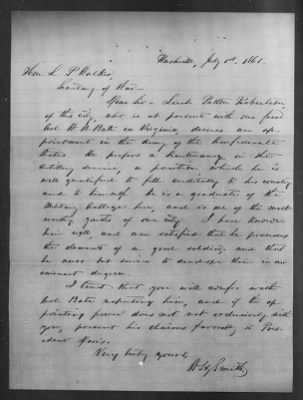 Nashville, July 1st 1861.
Hon. L. P. Walker,
Secretary of War
Dear Sir - Lieut Patton Robertson,
of this city, who is at present with our friend
Col W. B. Bate in Virginia, desires an ap-
pointment in the Army of the Confederate
States. He prefers a lieutenancy in the
Artillery service, a position which he is
well qualified to fill creditably to his country
and to himself. He is a graduate of the
Military College here, and is one of the most
worthy youths of our city. I have known
him well, and am satisfied that he possesses
the elements of a good soldier, and that
he must but serve to develope them in an
eminent degree.
I trust that you will confer with
Col. Bate respecting him, and if the ap-
pointing power does not rest exclusively with
you, present his claims favorably to Pres-
ident Davis.
Very truly yours,
Smith